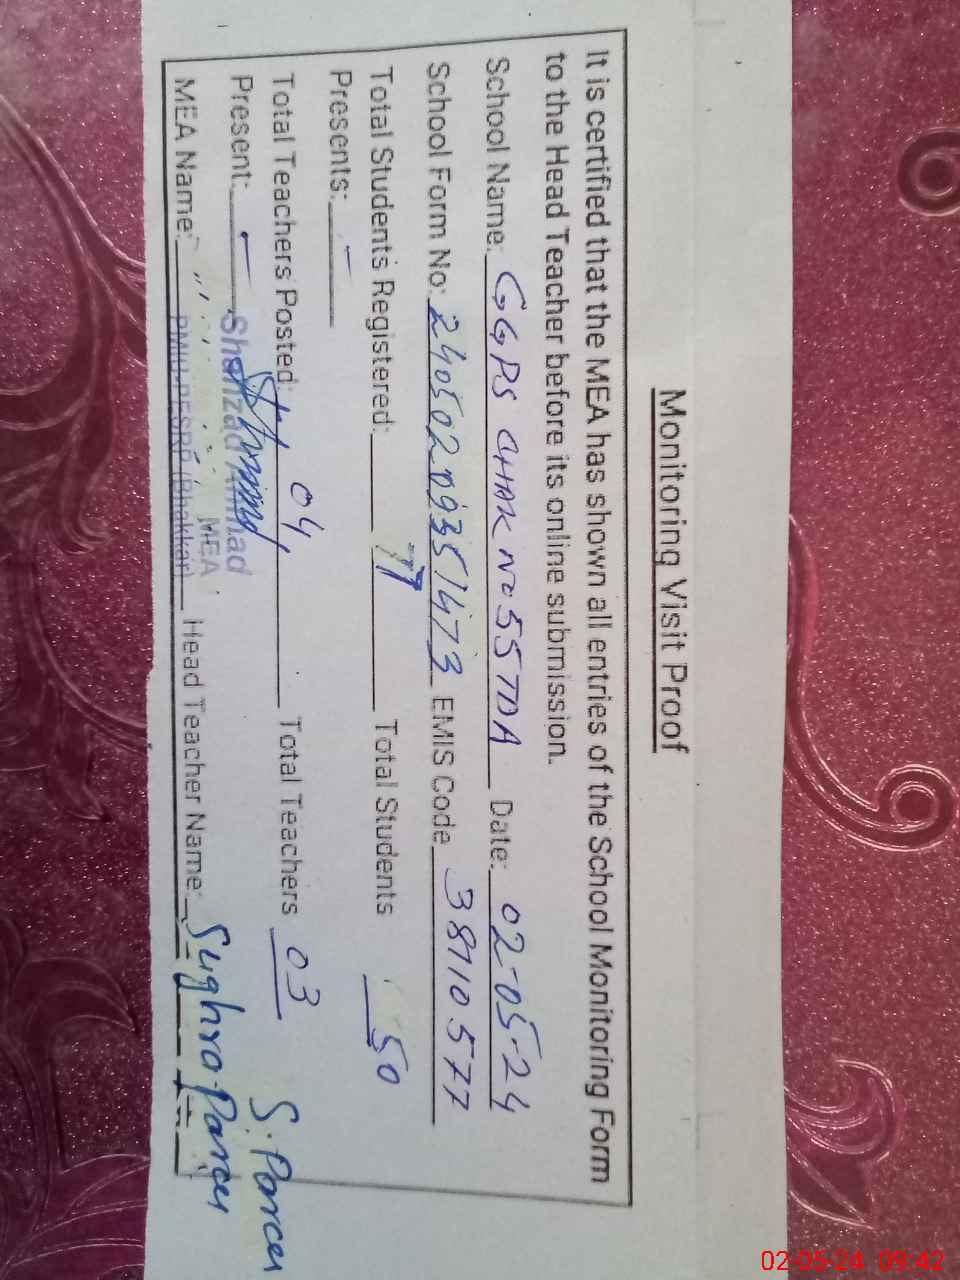 Monitoring Visit Proof
It is certified that the MEA has shown all entries of the School Monitoring Form
to the Head Teacher before its online submission.
School Name: GGPS CHAK NO 55 TDA Date: 02-05-24
School Form No: 24050209351473 EMIS Code 38710577
Total Students Registered: 77 Total Students 50
Presents:
Total Teachers Posted: 04 Total Teachers 03
Present: Shahzad Ahmad S. Parveen
MEA
MEA Name: PMIU-PESRP (Bhakkar) Head Teacher Name: Sughra Parveen
02-05-24 09:42